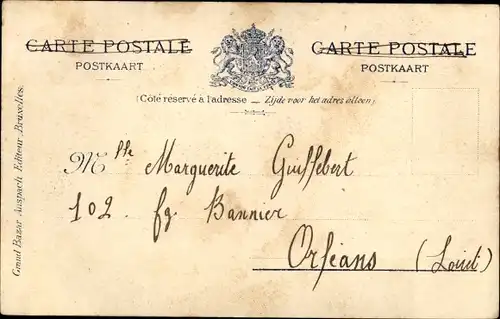 CARTE POSTALE
POSTKAART
CARTE POSTALE
POSTKAART
(Côté réservé à l'adresse — Zijde voor het adres alleen)
Mlle Marguerite Guillebert
102. fg. Bannier
Orléans (Loiret)
Grand Bazar Anspach Editeur Bruxelles.